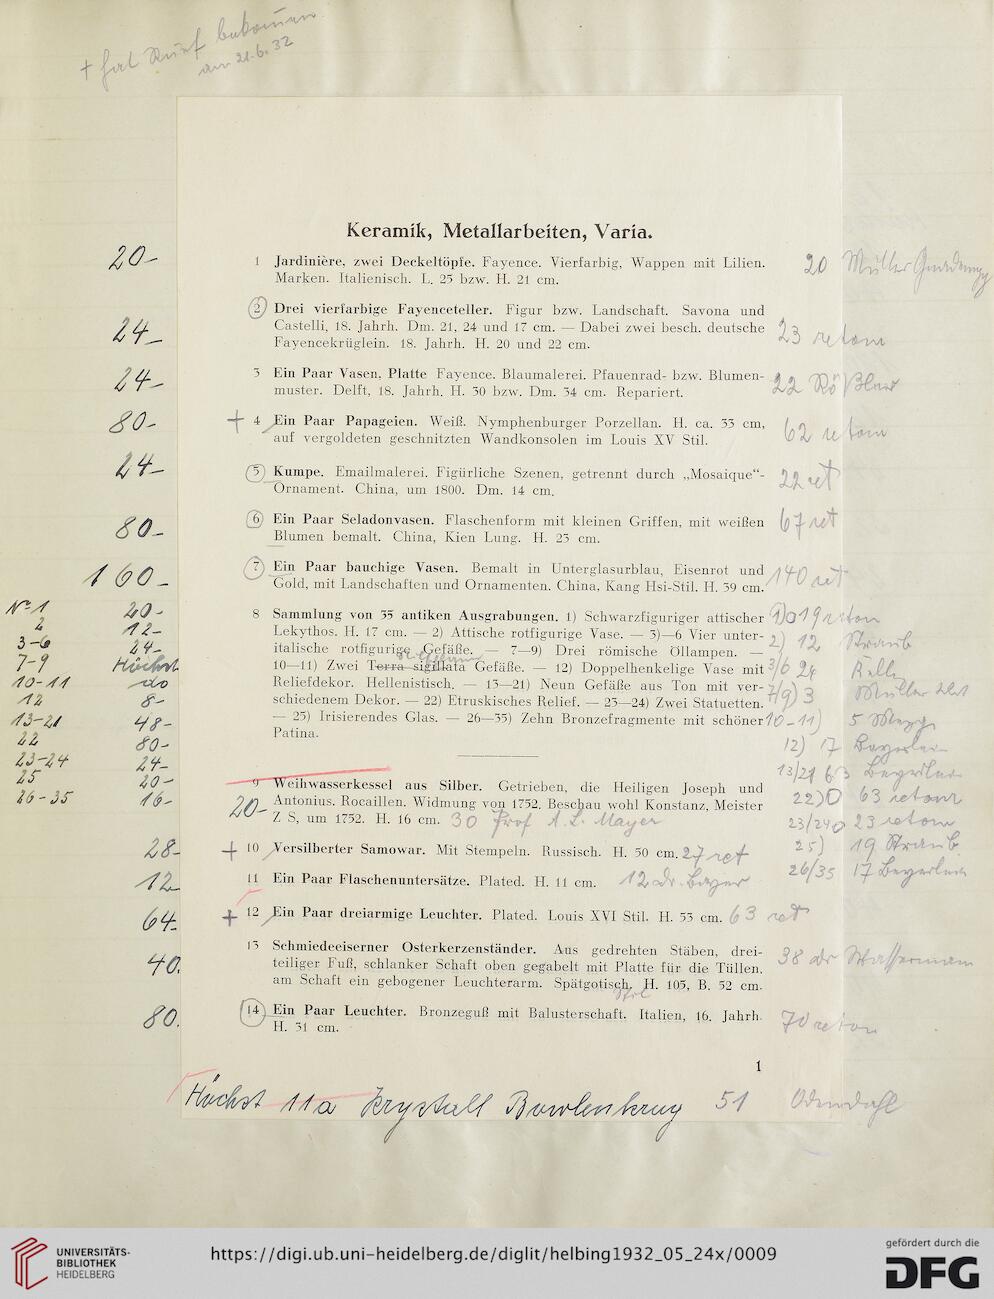 am 21.6.32
Keramik, Metallarbeiten, Varia.
20-
1 Jardinière, zwei Deckeltöpfe. Fayence. Vierfarbig, Wappen mit Lilien.
Marken. Italienisch. L. 25 bzw. H. 21 cm.
20 Müller
2 Drei vierfarbige Fayenceteller. Figur bzw. Landschaft. Savona und
Castelli, 18. Jahrh. Dm. 21, 24 und 17 cm. — Dabei zwei besch. deutsche
Fayencekrüglein. 18. Jahrh. H. 20 und 22 cm.
24-
23 retour
3 Ein Paar Vasen, Platte Fayence. Blaumalerei. Pfauenrad- bzw. Blumen-
muster. Delft, 18. Jahrh. H. 30 bzw. Dm. 34 cm. Repariert.
24-
22 Rößler
80-
+ 4 Ein Paar Papageien. Weiß. Nymphenburger Porzellan. H. ca. 33 cm,
auf vergoldeten geschnitzten Wandkonsolen im Louis XV Stil.
62 retour
24-
5 Kumpe. Emailmalerei. Figürliche Szenen, getrennt durch „Mosaique“-
Ornament. China, um 1800. Dm. 14 cm.
22 ret
80-
6 Ein Paar Seladonvasen. Flaschenform mit kleinen Griffen, mit weißen
Blumen bemalt. China, Kien Lung. H. 23 cm.
67 ret
160-
7 Ein Paar bauchige Vasen. Bemalt in Unterglasurblau, Eisenrot und
Gold, mit Landschaften und Ornamenten. China, Kang Hsi-Stil. H. 39 cm.
140 ret
8 Sammlung von 35 antiken Ausgrabungen. 1) Schwarzfiguriger attischer
Lekythos. H. 17 cm. — 2) Attische rotfigurige Vase. — 3)—6 Vier unter-
italische rotfigurige Gefäße. — 7—9) Drei römische Öllampen. —
10—11) Zwei Terra sigillata Gefäße. — 12) Doppelhenkelige Vase mit
Reliefdekor. Hellenistisch. — 13—21) Neun Gefäße aus Ton mit ver-
schiedenem Dekor. — 22) Etruskisches Relief. — 23—24) Zwei Statuetten.
— 25) Irisierendes Glas. — 26—35) Zehn Bronzefragmente mit schöner
Patina.
No 1 20-
2 12-
3-6 24-
7-9 Höchst
10-11 do
12 8-
13-21 48-
22 80-
23-24 24-
25 20-
26-35 16-
1) 19 retour
2) 12 Straub
3/6 24
7/9) 3 Müller
10-11) 5
12) 17 Beyerlein
13/21 63 Beyerlein
22) 63 retour
23/24 23 retour
25) 19 Straub
26/35 17 Beyerlein
9 Weihwasserkessel aus Silber. Getrieben, die Heiligen Joseph und
Antonius. Rocaillen. Widmung von 1752. Beschau wohl Konstanz, Meister
Z S, um 1752. H. 16 cm. 30 Prof A. L. Mayer
20-
28-
+ 10 Versilberter Samowar. Mit Stempeln. Russisch. H. 50 cm. 27 ret
12
11 Ein Paar Flaschenuntersätze. Plated. H. 11 cm. 12 dr. Bayer
64-
+ 12 Ein Paar dreiarmige Leuchter. Plated. Louis XVI Stil. H. 53 cm. 63 ret
40.
13 Schmiedeeiserner Osterkerzenständer. Aus gedrehten Stäben, drei-
teiliger Fuß, schlanker Schaft oben gegabelt mit Platte für die Tüllen,
am Schaft ein gebogener Leuchterarm. Spätgotisch. H. 105, B. 52 cm.
Stil
38 dr Wassermann
80.
14 Ein Paar Leuchter. Bronzeguß mit Balusterschaft. Italien, 16. Jahrh.
H. 31 cm.
70 retour
1
Höchst 11a Krystall Bowlenkrug 51 Odendahl
UNIVERSITÄTS-
BIBLIOTHEK
HEIDELBERG
https://digi.ub.uni-heidelberg.de/diglit/helbing1932_05_24x/0009
gefördert durch die
DFG